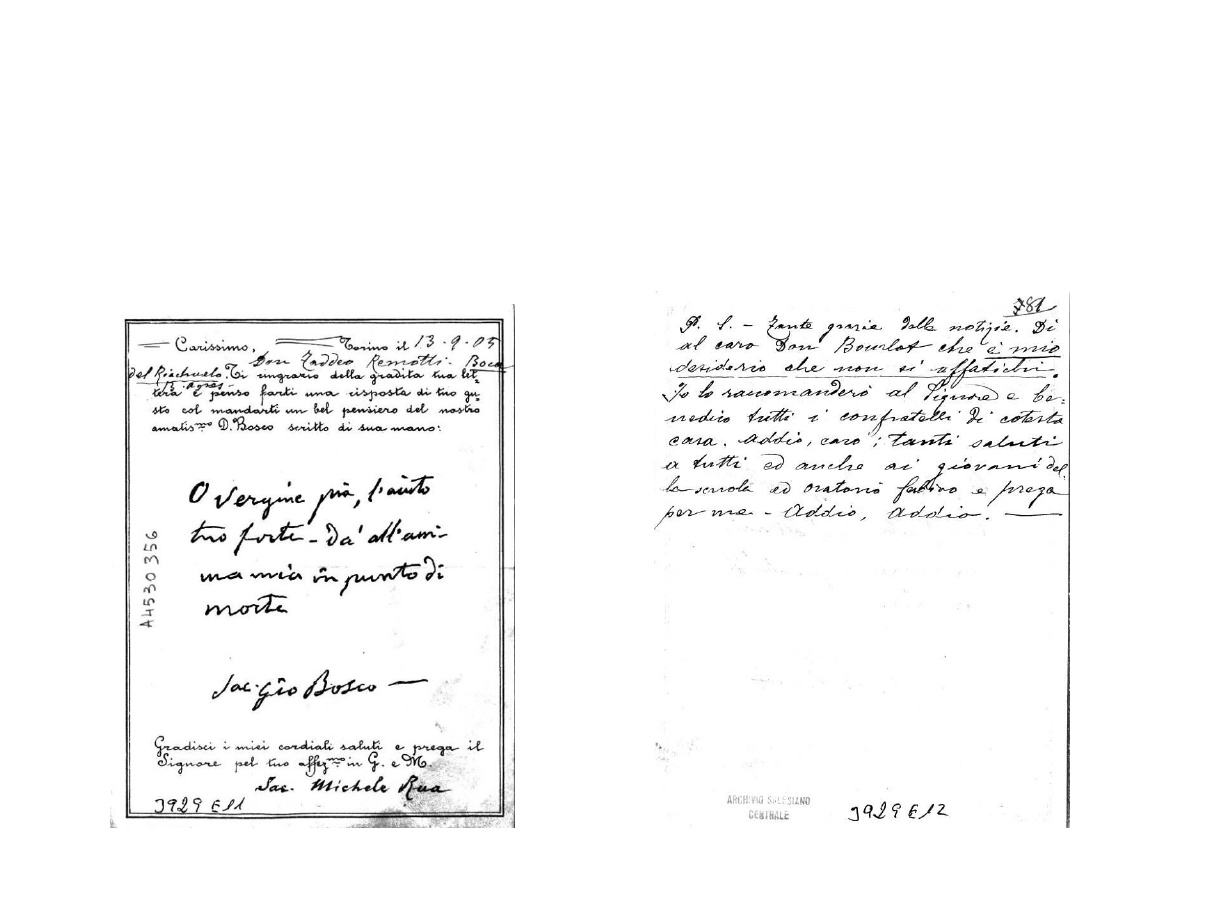 Carissimo, Torino il 13-9-05
Don Taddeo Remotti. Boca
del Riachuelo. Ti ringrazio della gradita tua let-
B. Ayres -
tera e penso farti una risposta di tuo gu-
sto col mandarti un bel pensiero del nostro
amatis.mo D. Bosco scritto di sua mano:
O Vergine pia, l'aiuto
tuo forte - Da' all'ani-
ma mia in punto di
morte
Sac. Gio Bosco
Gradisci i miei cordiali saluti e prega il
Signore pel tuo affez.mo in G. e M.
Sac. Michele Rua
3929 E11
A4530356
781
P. S. - Tante grazie delle notizie. Di
al caro Don Bourlot che è mio
desiderio che non si affatichi.
Io lo raccomanderò al Signore e be-
nedico tutti i confratelli di cotesta
casa. Addio, caro; tanti saluti
a tutti ed anche ai giovani del
la scuola ed oratorio festivo e prega
per me - Addio, Addio.
ARCHIVIO SALESIANO
CENTRALE
3929 E12